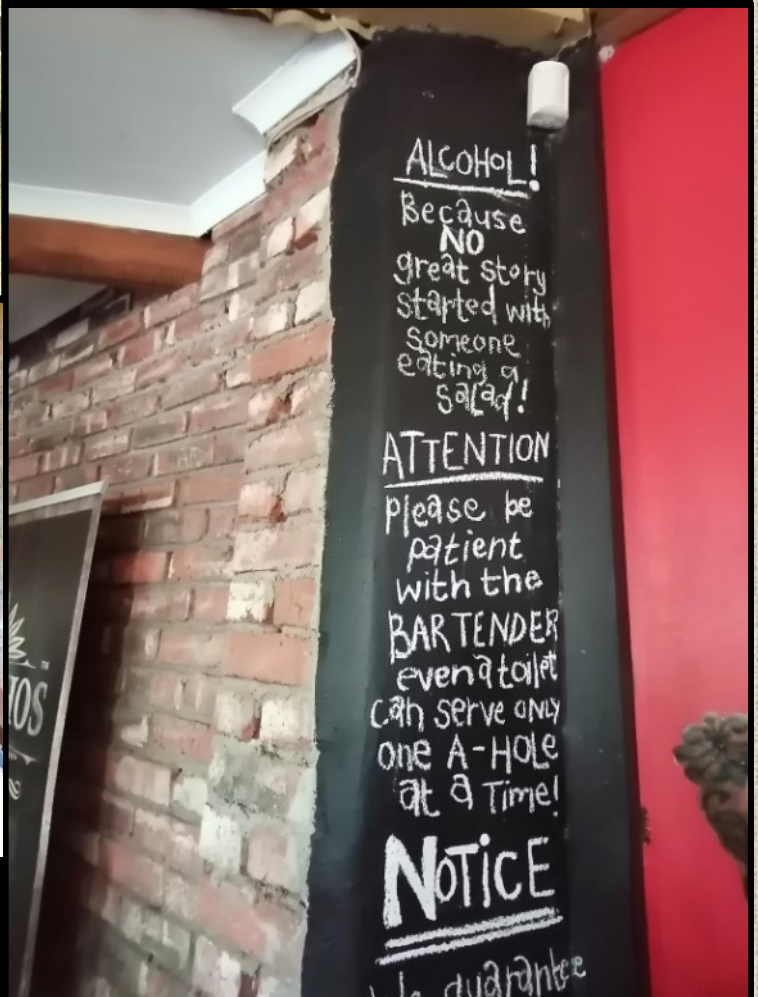 ALCOHOL!
Because
NO
great story
started with
someone
eating a
salad!
ATTENTION
please be
patient
with the
BARTENDER
even a toilet
can serve ONLY
one A-HOLE
at a Time!
NOTiCE
guarantee